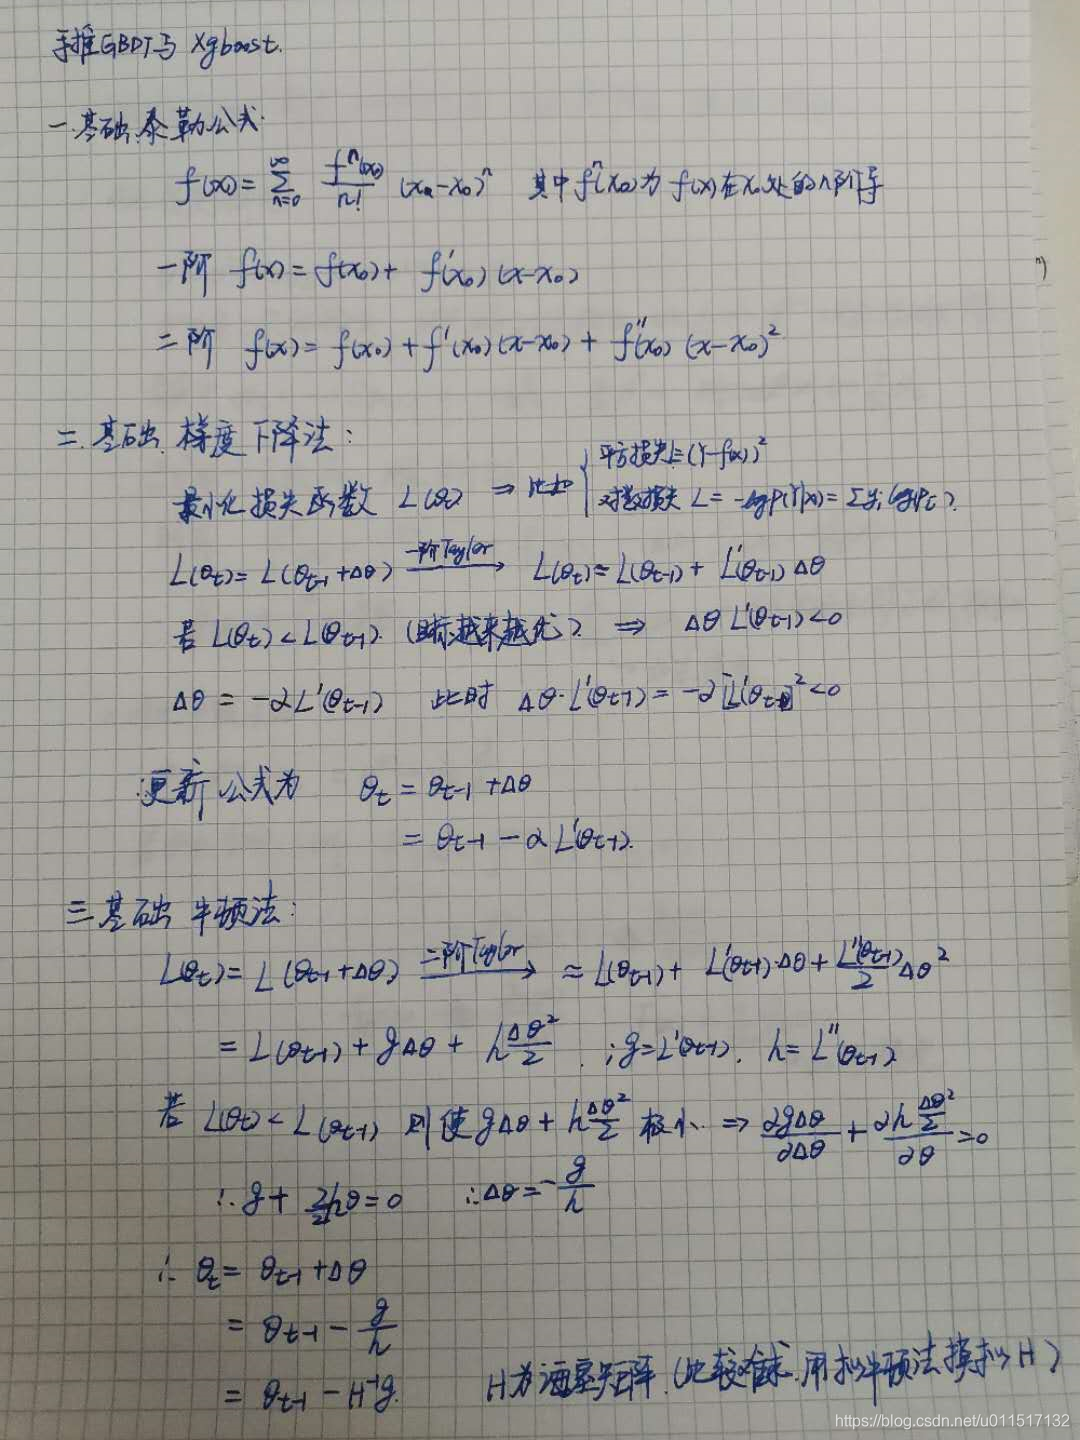 手推GBDT与 Xgboost.
一.基础.泰勒公式.
f(x) = ∑_{n=0}^{∞} \frac{f^n(x_0)}{n!} (x_n-x_0)^n 其中f^n(x_0)为 f(x)在x_0处的n阶导
一阶 f(x) = f(x_0) + f'(x_0)(x-x_0)
二阶 f(x) = f(x_0) + f'(x_0)(x-x_0) + f''(x_0)(x-x_0)^2
二.基础.梯度下降法:
最小化损失函数 L(θ_t) ⇒ 比如 { 平方损失L=(Y-f(x))^2
对数损失 L = -logp(Y|x) = ∑y_i log(p_i).
L(θ_t) = L(θ_{t-1}+Δθ) —一阶Taylor→ L(θ_t) = L(θ_{t-1}) + L'(θ_{t-1})Δθ
若 L(θ_t) < L(θ_{t-1}). (目标越来越优). ⇒ Δθ L'(θ_{t-1})<0
Δθ = -αL'(θ_{t-1}) 此时 Δθ·L'(θ_{t-1}) = -α[L'(θ_{t-1})]^2<0
∴更新公式为 θ_t = θ_{t-1} + Δθ
= θ_{t-1} - αL'(θ_{t-1}).
三.基础 牛顿法:
L(θ_t) = L(θ_{t-1}+Δθ) —二阶Taylor→ ≈ L(θ_{t-1}) + L'(θ_{t-1})·Δθ + \frac{L''(θ_{t-1})}{2}Δθ^2
= L(θ_{t-1}) + gΔθ + h\frac{Δθ^2}{2} . ; g=L'(θ_{t-1}). h=L''(θ_{t-1})
若 L(θ_t) < L(θ_{t-1}) 则使gΔθ + h\frac{Δθ^2}{2} 极小. ⇒ \frac{∂gΔθ}{∂Δθ} + \frac{∂h\frac{Δθ^2}{2}}{∂θ} = 0
∴ g + \frac{2}{2}hθ = 0 ∴Δθ = -\frac{g}{h}
∴ θ_t = θ_{t-1} + Δθ
= θ_{t-1} - \frac{g}{h}
= θ_{t-1} - H^{-1}g. H为海塞矩阵.(比较难求.用拟牛顿法模拟H)
https://blog.csdn.net/u011517132